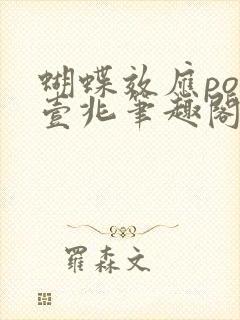 蝴蝶效應po
壹兆筆趣閣
羅森文